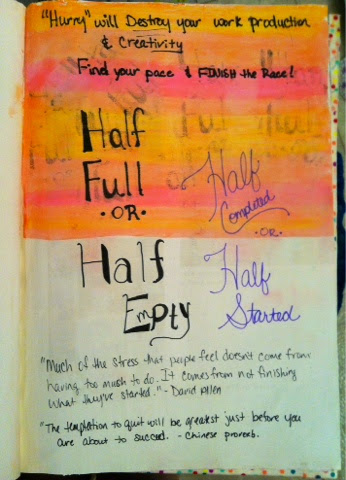 "Hurry" will Destroy your work production
& Creativity
Find your pace & FINISH the Race!
Half
Full
·OR·
Half
Completed
·OR·
Half
Empty
Half
Started
"Much of the stress that people feel doesn't come from
having too much to do. It comes from not finishing
what they've started." - David Allen
"The temptation to quit will be greatest just before you
are about to succeed. - Chinese proverb.